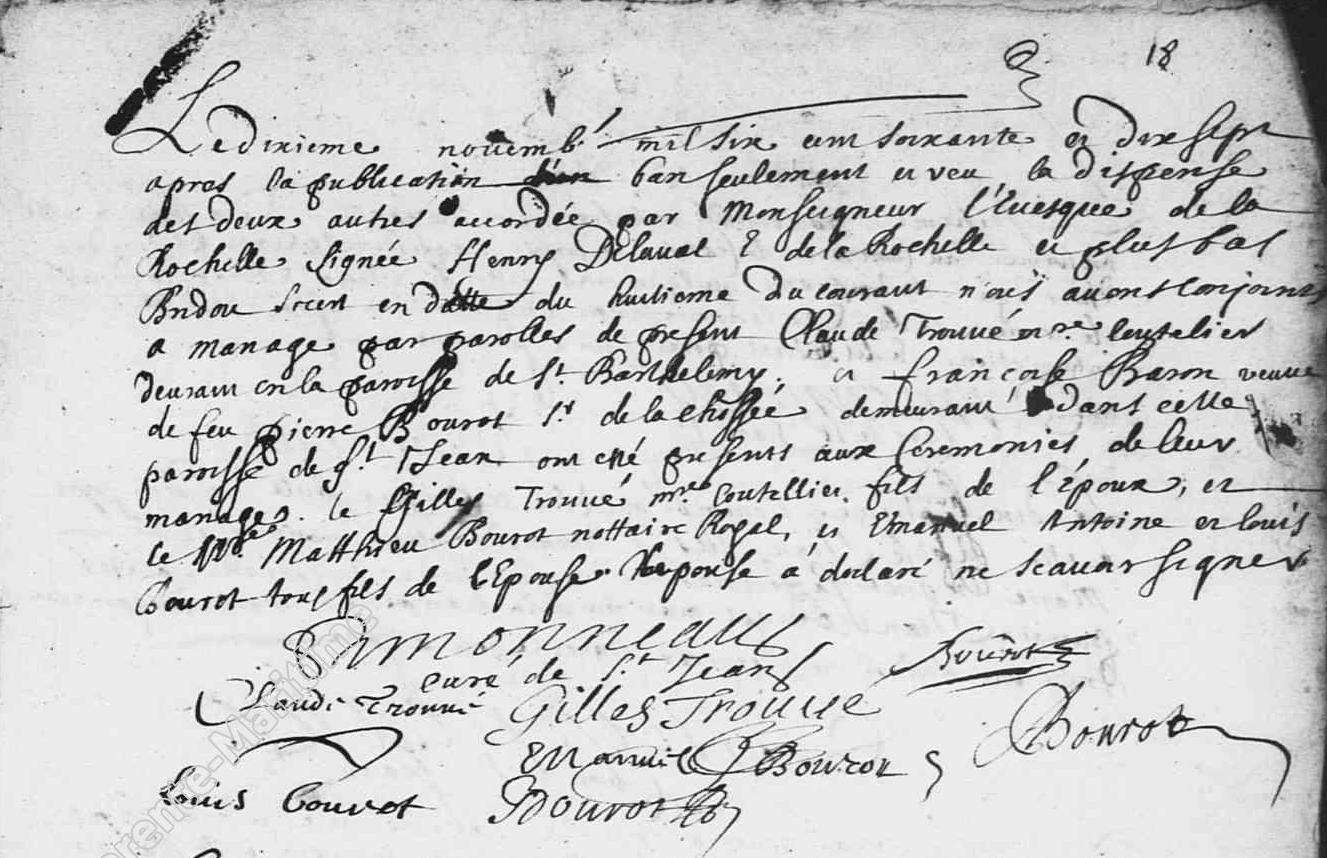 18
Le dixieme novemb. mil six cent soixante et dix sept
apres la publication d'un ban seulement et veu la dispense
des deux autres accordée par Monseigneur l'Euesque de la
Rochelle signée Henry Delaval E de la Rochelle et plus bas
en datte du huitieme du courant nous auons conjoints
a mariage par parolles de present Claude Trouvé mre coutelier
en la paroisse de St. Barthelemy, et françoise Baron veuue
de feu pierre Bourot Sr de la chossée demeurant dans cette
paroisse de St Jean ont esté presents aux Ceremonies de leur
mariages. le Gilles Trouvé mre coutellier fils de l'époux, et
Le Matthieu Bourot nottaire Royal, et Emanuel Antoine et louis
Bourot tous fils de l'Epouse. l'epouse a declaré ne scauoir signer
Simonneau
curé de St Jean
Bourot
Claude Trouvé
Gilles Trouvé
Bourot
Emanuel Bourot
Louis bourot
Bourot